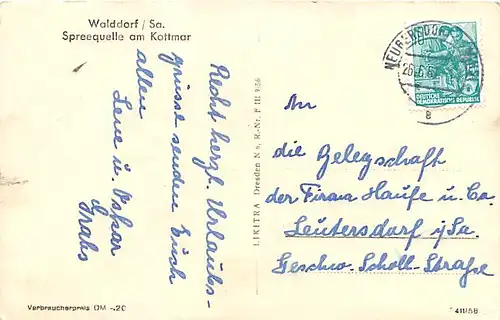 Walddorf / Sa.
Spreequelle am Kottmar
Recht herzl. Urlaubs-
grüsse senden Euch
allen
Lene u. Oskar
LIKITRA Dresden N 6, R.-Nr. F III 9/56
DEUTSCHE
DEMOKRATISCHE REPUBLIK
An
die Belegschaft
der Firma Haufe u. Co.
Leutersdorf i/Sa.
Geschw. Scholl-Straße
Verbraucherpreis DM -.20
411/58